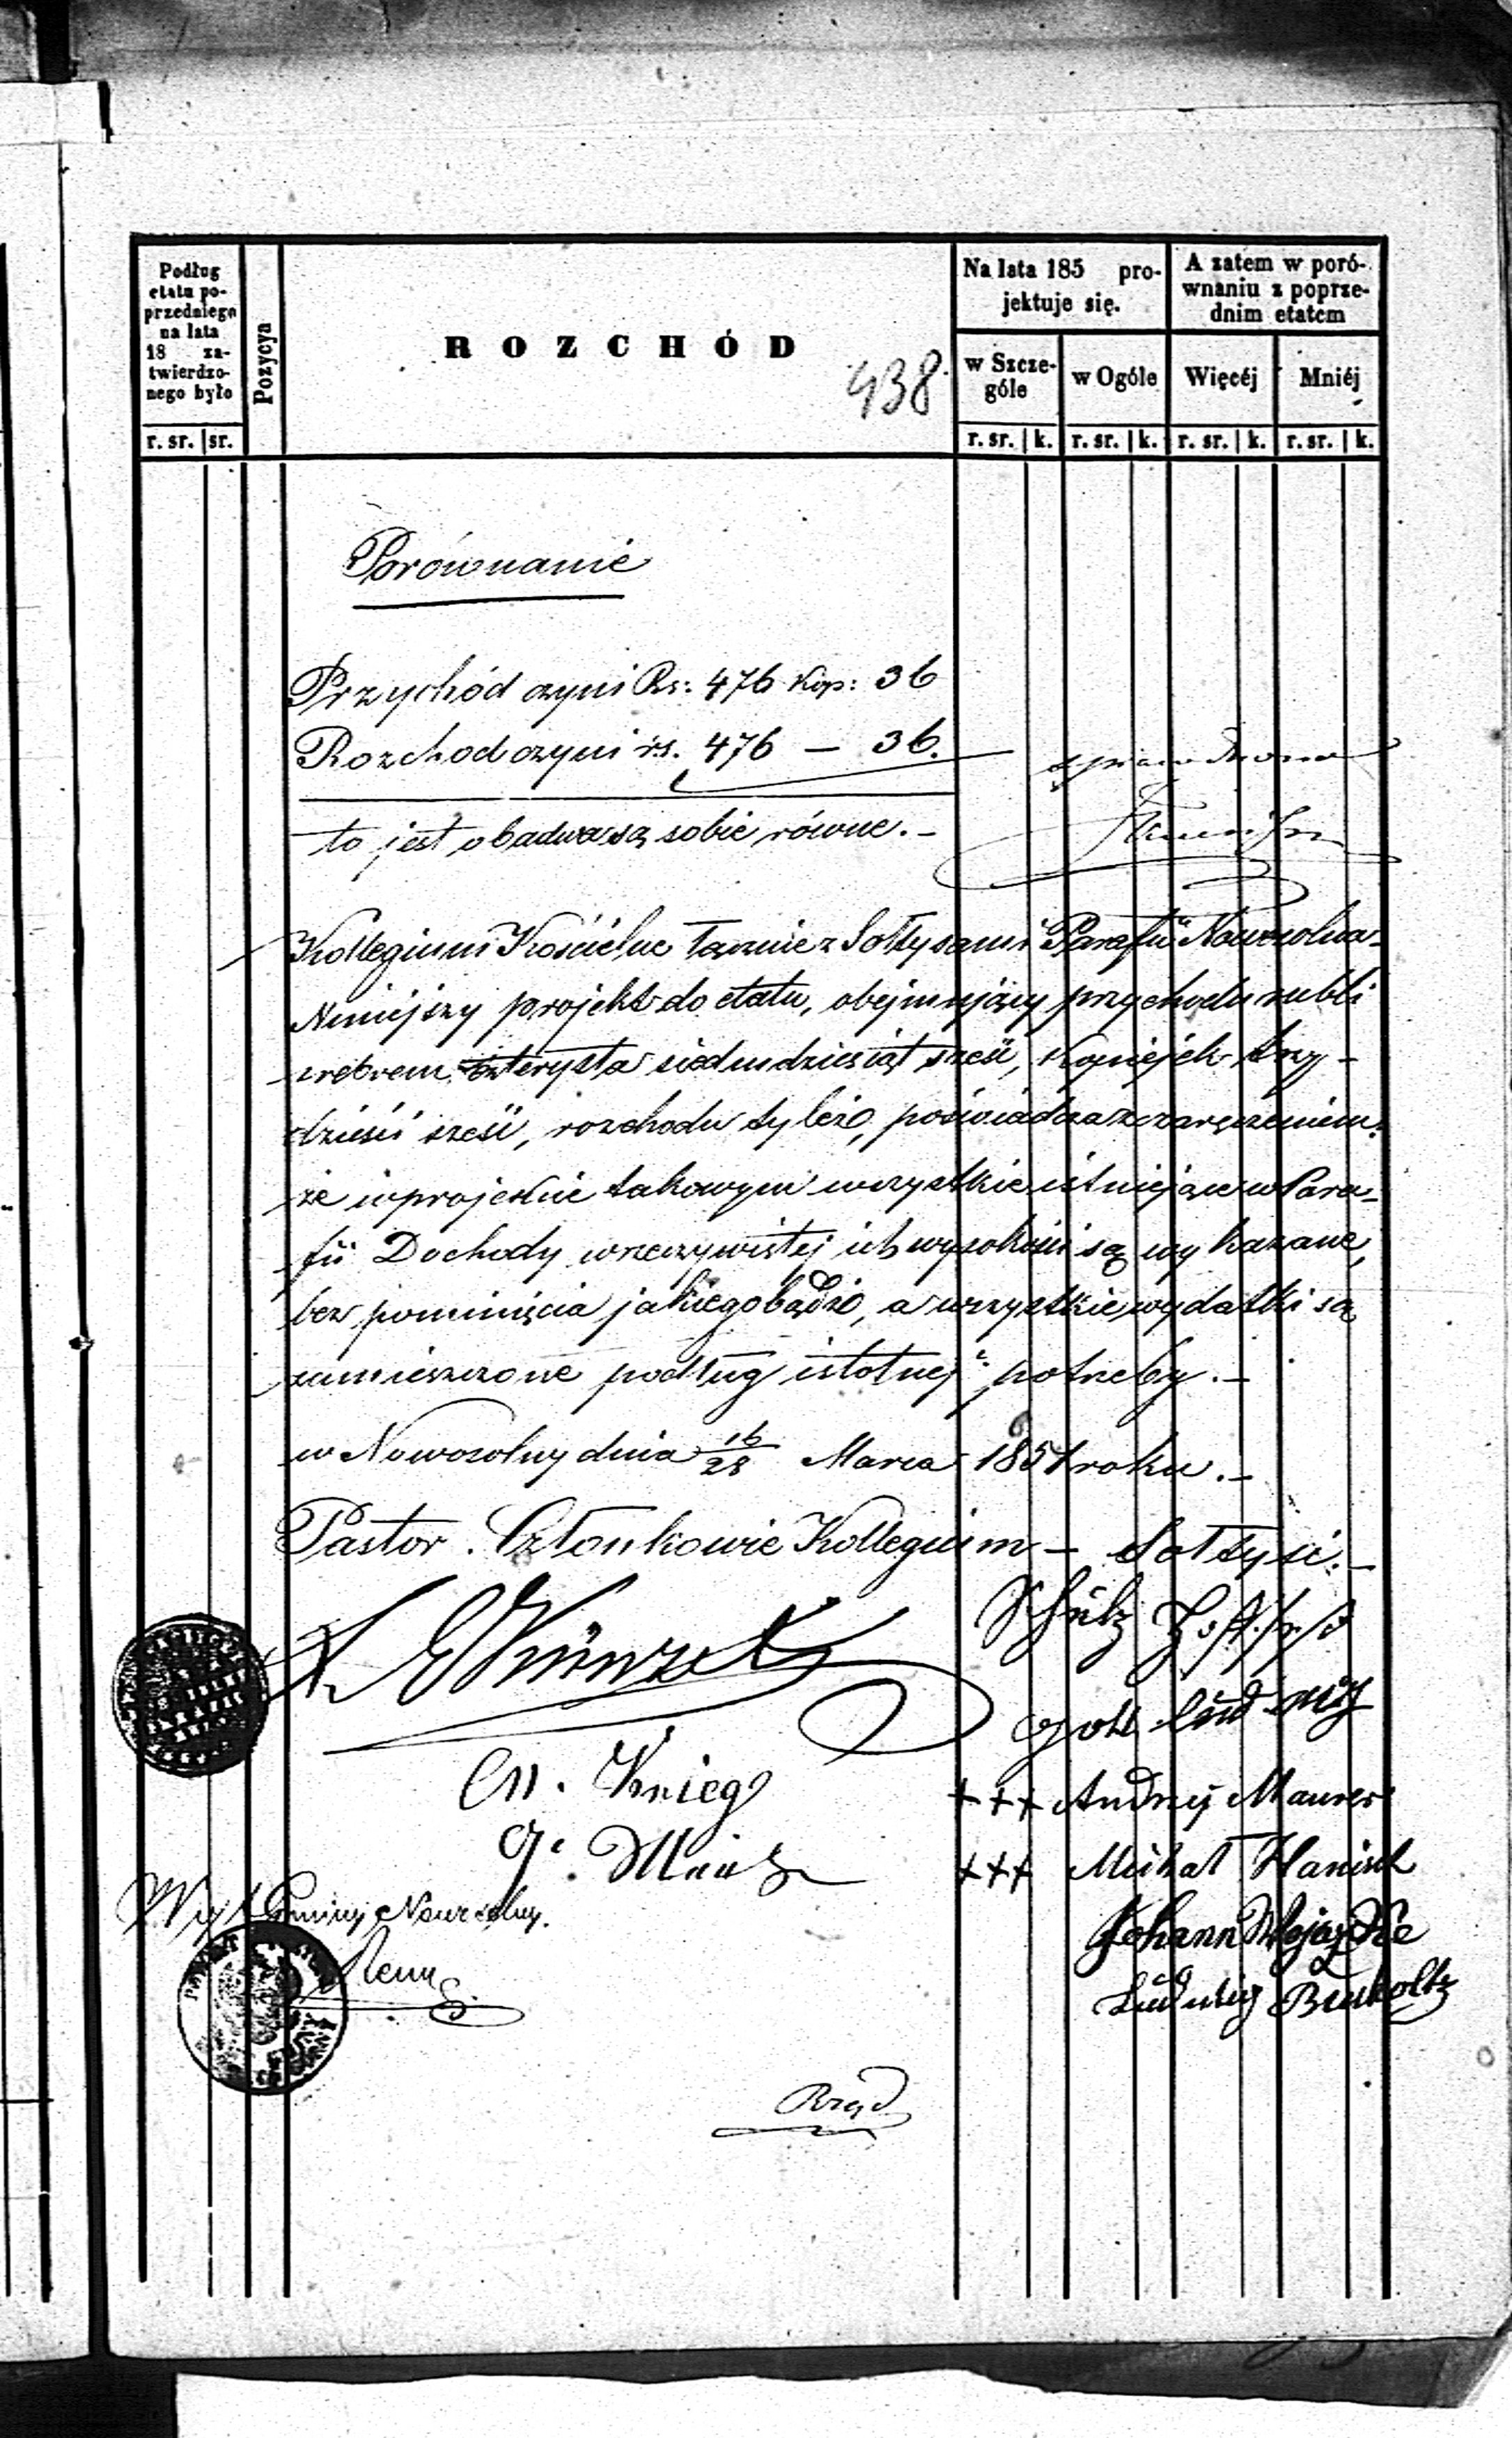 Podług
etatu po-
przedniego
na lata
18 za-
twierdzo-
nego było
r. sr. sr.
Pozycya
ROZCHÓD
438
Na lata 185 pro-
jektuje się.
w Szcze-
góle
w Ogóle
r. sr. k. r. sr. k.
A zatem w poró-
wnaniu z poprze-
dnim etatem
Więcéj Mniéj
r. sr. k. r. sr. k.
Porównanie
Przychód czyni Rs: 476 kop: 36
Rozchod czyni rs. 476 — 36.
to jest obadwa są sobie równe. –
Kollegium Kościelne łącznie z Sołtysami Parafii Nowosolna
Niniejszy projekt do etatu, obejmujący przychodu rubli
srebrem czterysta siedmdziesiąt sześć, kopiejek trzy-
dzieści sześć, rozchodu tyleż, poświadcza z zaręczeniem,
że w projekcie takowym wszystkie istniejące w Para-
fii Dochody w rzeczywistej ich wysokości są wykazane,
bez pominięcia jakiegobądź, a wszystkie wydatki są
zamieszczone podług istotnej potrzeby. –
w Nowosolny dnia 16/28 Marca 1851 roku. –
Pastor. Członkowie Kollegium – Sołtysi. –
Schulz
Gott. Ludwig
M. Krieg
+++ Andrzej Maurer
+++ Michał Hanisch
Wójt Gminy Nowosolny.
Johann
Ludwig Buchholtz
Rząd